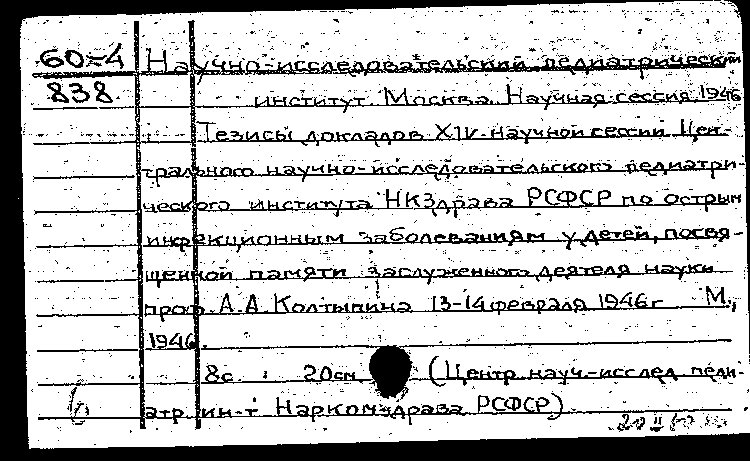 60=4 Научно-исследовательский педиатрический
838 институт. Москва. Научная сессия, 1946
Тезисы докладов XIV научной сессии Цен-
трального научно-исследовательского педиатри-
ческого института НКЗдрава РСФСР по острым
инфекционным заболеваниям у детей, посвя-
щенной памяти заслуженного деятеля науки
проф. А.А. Колтыпина 13-14 февраля 1946 г М.,
1946.
8с. 20см (Центр. науч.-исслед. педи-
атр. ин-т Наркомздрава РСФСР)